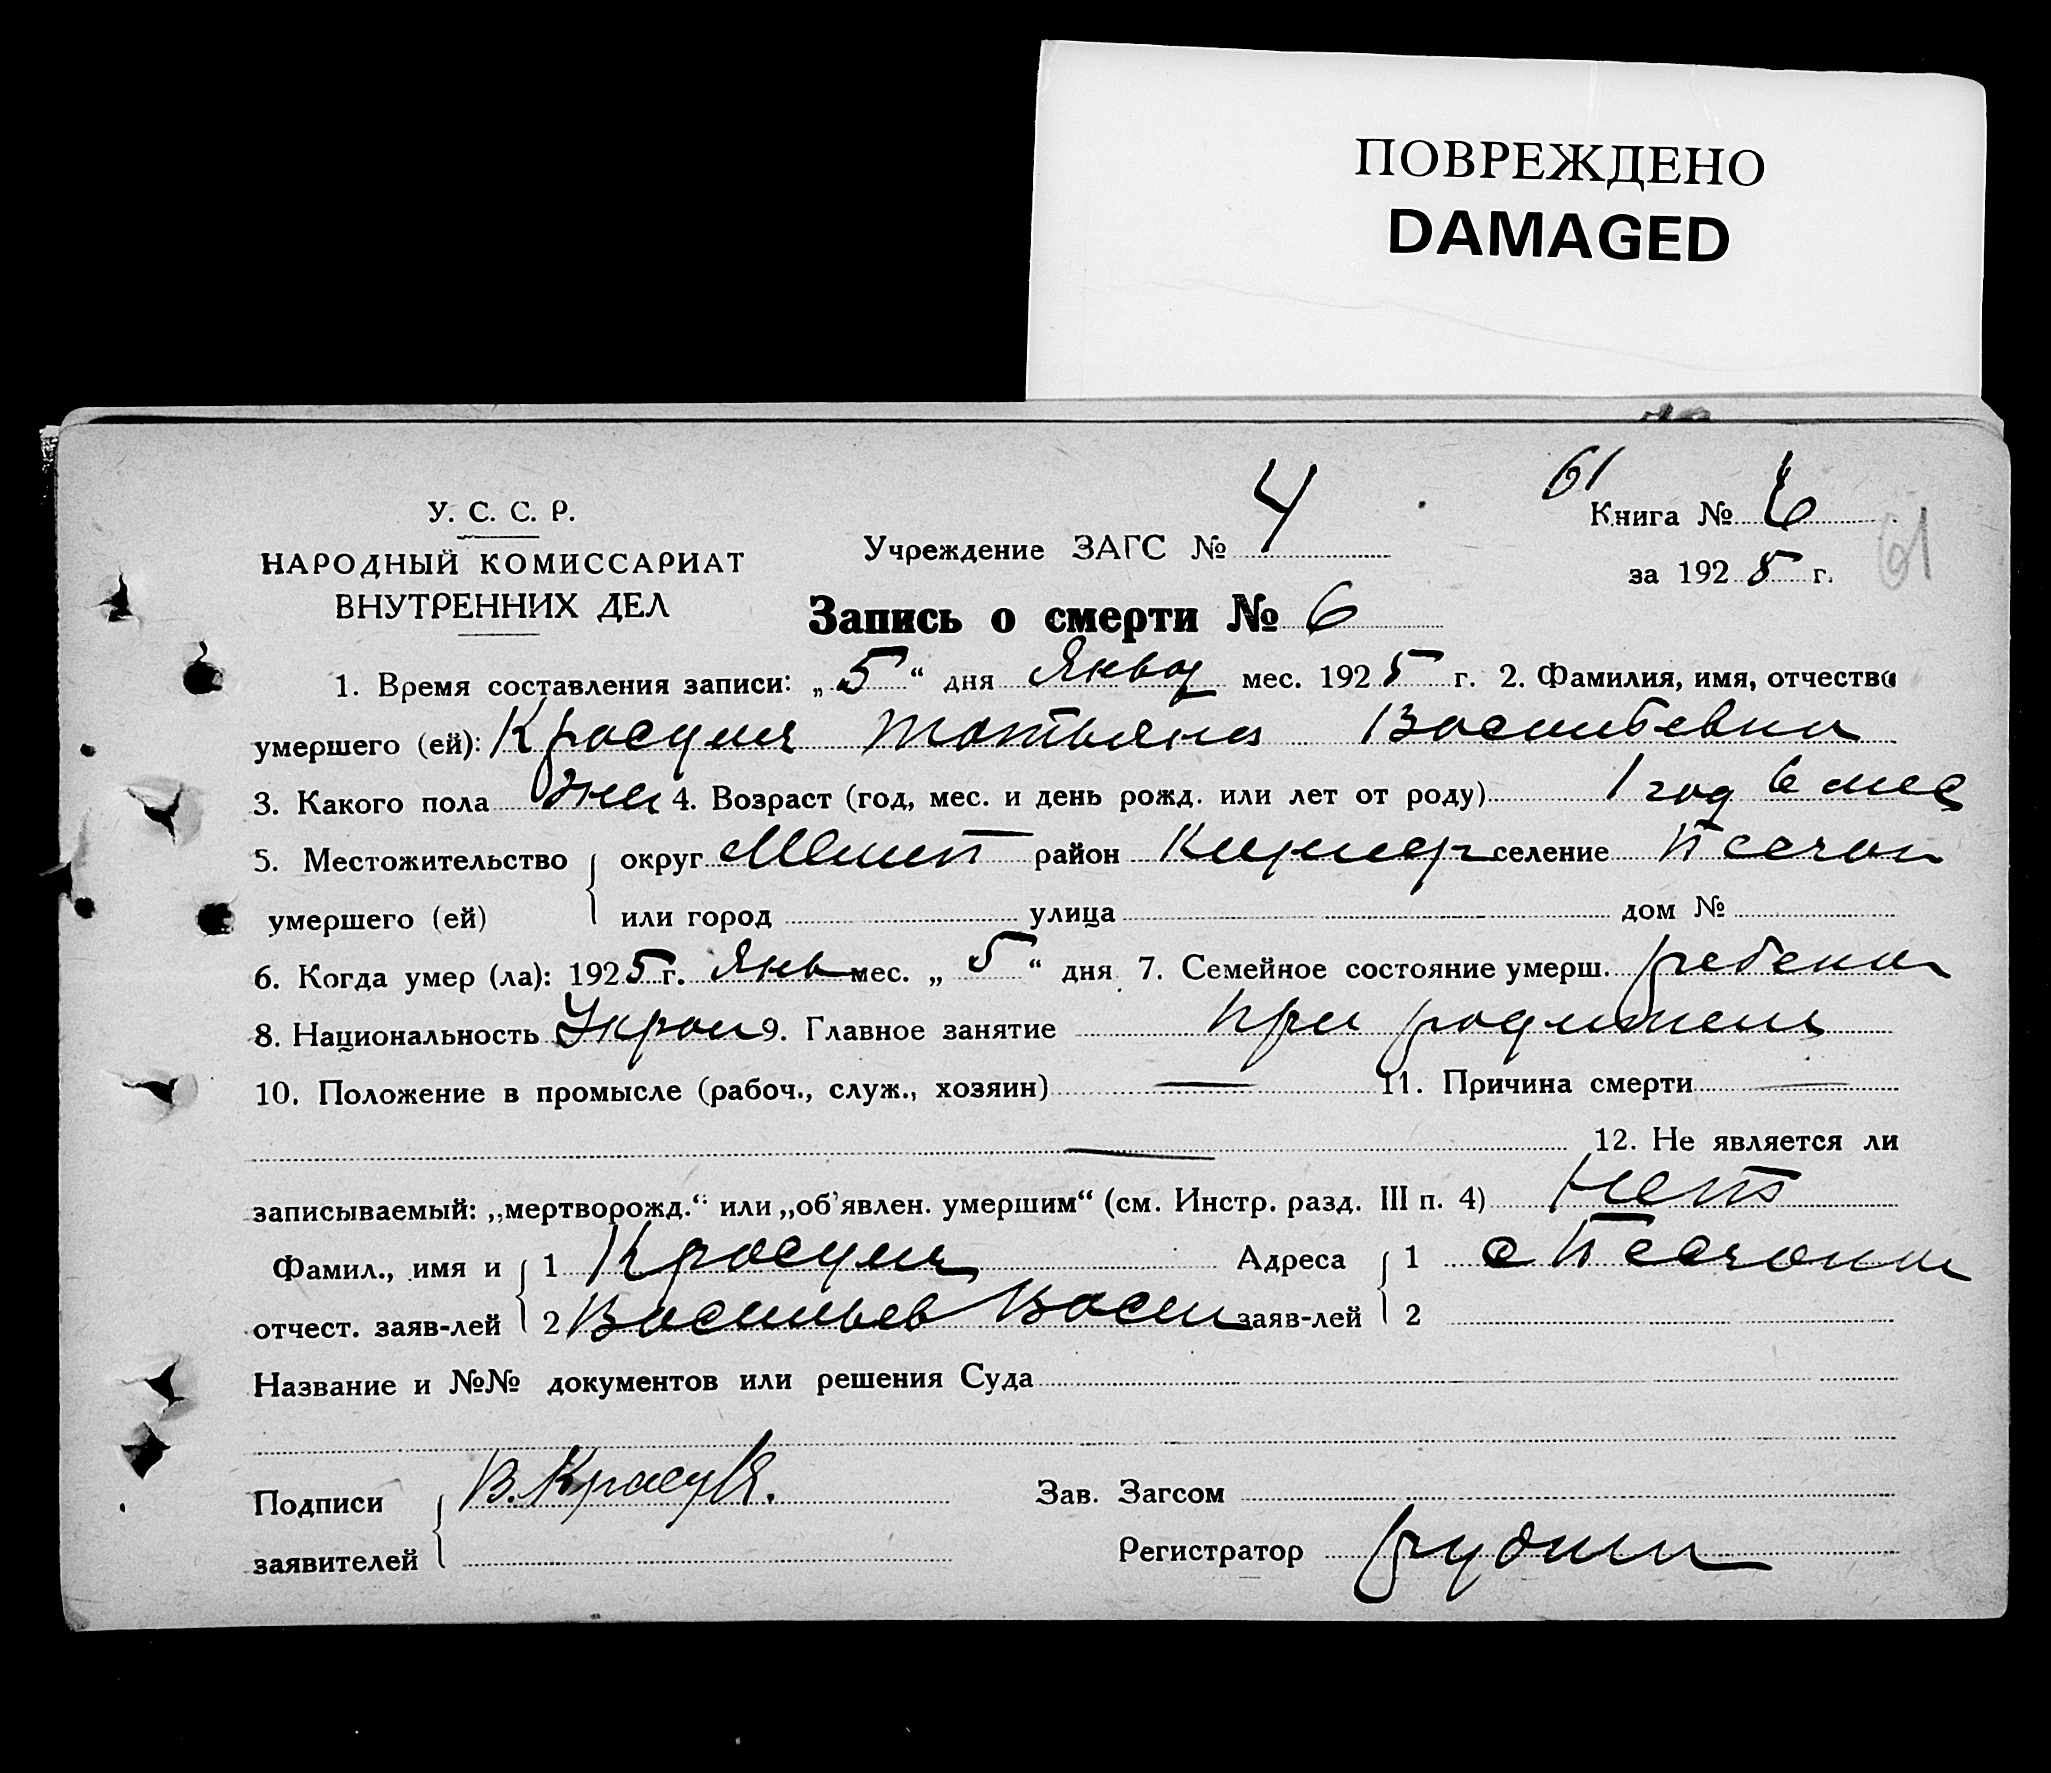 ПОВРЕЖДЕНО
DAMAGED
61
У. С. С. Р.
НАРОДНЫЙ КОМИССАРИАТ
ВНУТРЕННИХ ДЕЛ
Учреждение ЗАГС № 4
Книга № 6
за 1925 г.
61
Запись о смерти № 6
1. Время составления записи: „5“ дня Январ мес. 1925 г. 2. Фамилия, имя, отчество
умершего (ей): Красуля Татьяна Васильевна
3. Какого пола жен 4. Возраст (год, мес. и день рожд. или лет от роду) 1 год 6 мес
5. Местожительство округ Мелит район селение Песчан
умершего (ей) или город улица дом №
6. Когда умер (ла): 1925 г. Янв мес. „5“ дня 7. Семейное состояние умерш. ребенок
8. Национальность Украи 9. Главное занятие при родителях
10. Положение в промысле (рабоч., служ., хозяин) — 11. Причина смерти —
— 12. Не является ли
записываемый: „мертворожд.“ или „об'явлен. умершим“ (см. Инстр. разд. III п. 4) Нет
Фамил., имя и 1 Красуля Адреса 1 с Песчанка
отчест. заяв-лей 2 Васильев Васи заяв-лей 2
Название и №№ документов или решения Суда
Подписи В. Красуля. Зав. Загсом
заявителей Регистратор